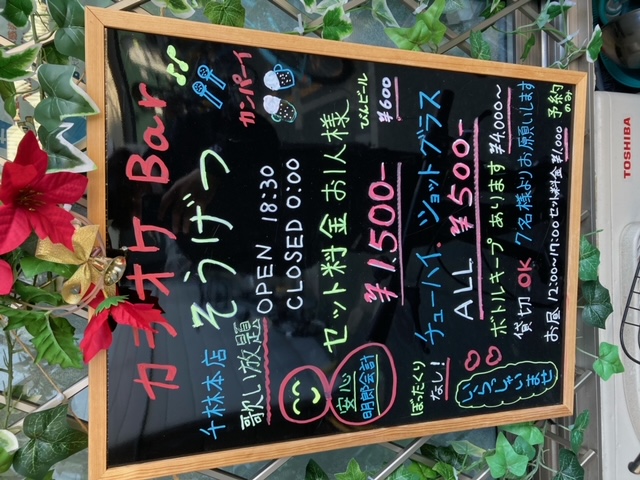 カラオケ Bar
カンパーイ
千林本店
そうげつ
歌い放題
OPEN 18:30
CLOSED 0:00
セット料金 お1人様
びんビール
¥600
¥1,500-
安心
明郎会計
チューハイ. ショットグラス
ALL ¥500-
ぼったくり
なし!
ボトルキープ あります ¥4,000〜
貸切 OK 7名様よりお願いします
お昼 12:00〜17:00 セット料金 ¥1,000 予約のみ
いらっしゃいませ
TOSHIBA